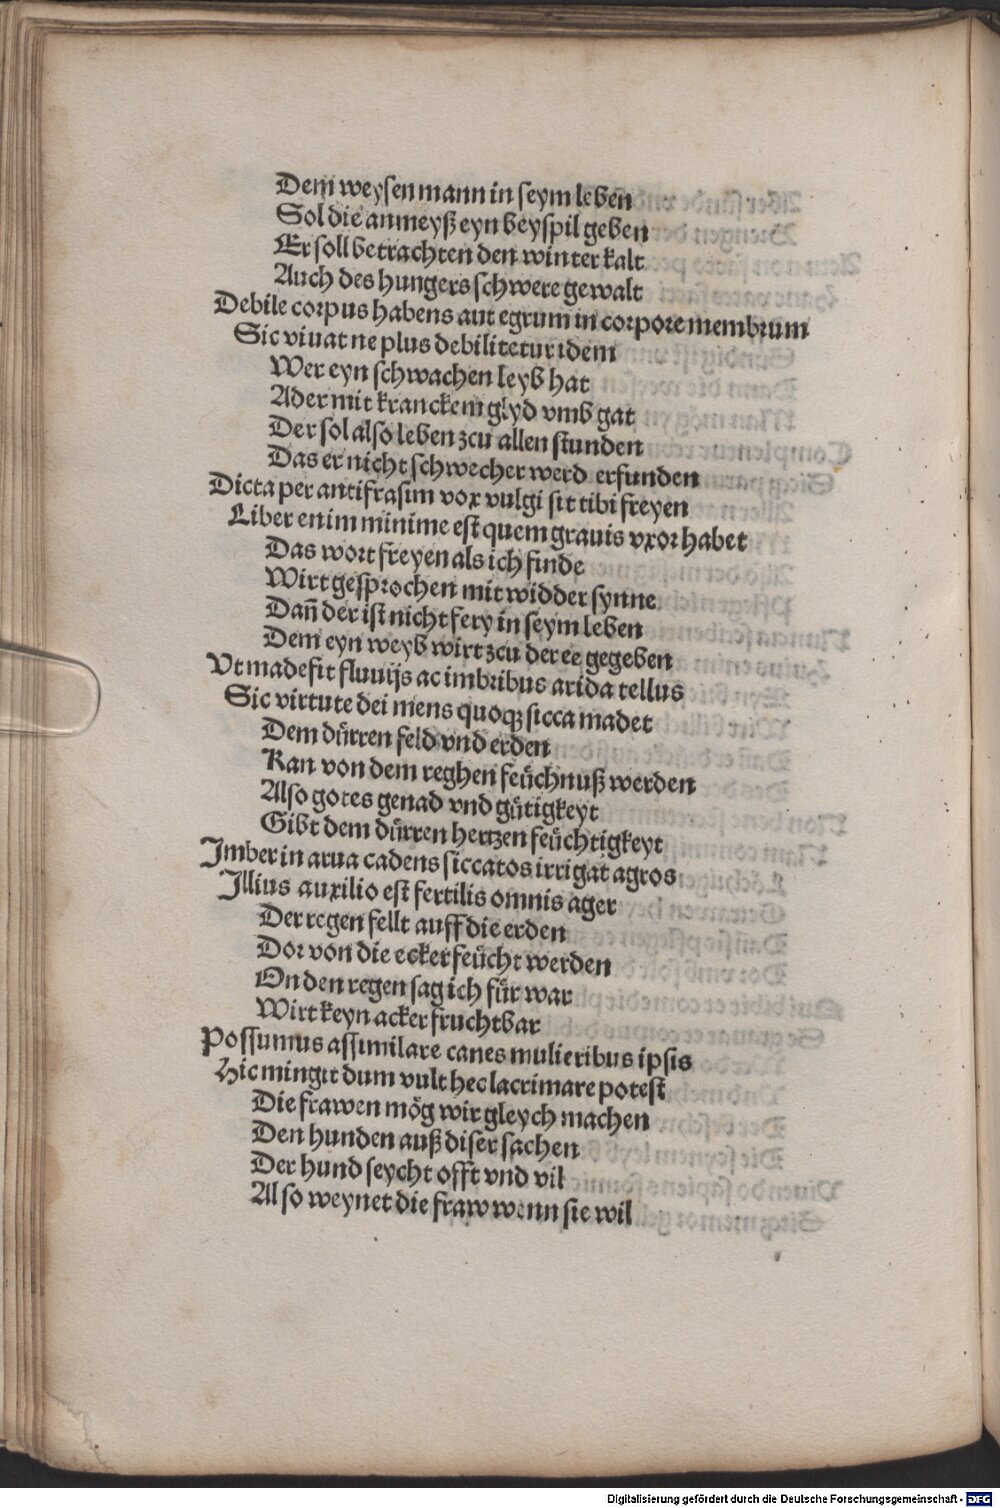 Dem weysen mann in seym leben
Sol die anmeyß eyn beyspil geben
Er soll betrachten den winter kalt
Auch des hungers schwere gewalt
Debile corpus habens aut egrum in corpore membrum
Sic viuat ne plus debilitetur idem
Wer eyn schwachen leyb hat
Ader mit kranckem glyd vmb gat
Der sol also leben zcu allen stunden
Das er nicht schwecher werd erfunden
Dicta per antifrasim vox vulgi sit tibi freyen
Liber enim minime est quem grauis vxor habet
Das wort freyen als ich finde
Wirt gesprochen mit widder synne
Dan̄ der ist nicht fery in seym leben
Dem eyn weyb wirt zcu der ee gegeben
Vt madefit fluuijs ac imbribus arida tellus
Sic virtute dei mens quoqꝫ sicca madet
Dem dürren feld vnd erden
Kan von dem reghen feüchnuß werden
Also gotes genad vnd gütigkeyt
Gibt dem dürren hertzen feüchtigkeyt
Imber in arua cadens siccatos irrigat agros
Illius auxilio est fertilis omnis ager
Der regen fellt auff die erden
Dor von die ecker feücht werden
On den regen sag ich für war
Wirt keyn acker fruchtbar
Possumus assimilare canes mulieribus ipsis
Hic mingit dum vult hec lacrimare potest
Die frawen mög wir gleych machen
Den hunden auß diser sachen
Der hund seycht offt vnd vil
Also weynet die fraw wenn sie wil
Digitalisierung gefördert durch die Deutsche Forschungsgemeinschaft - DFG